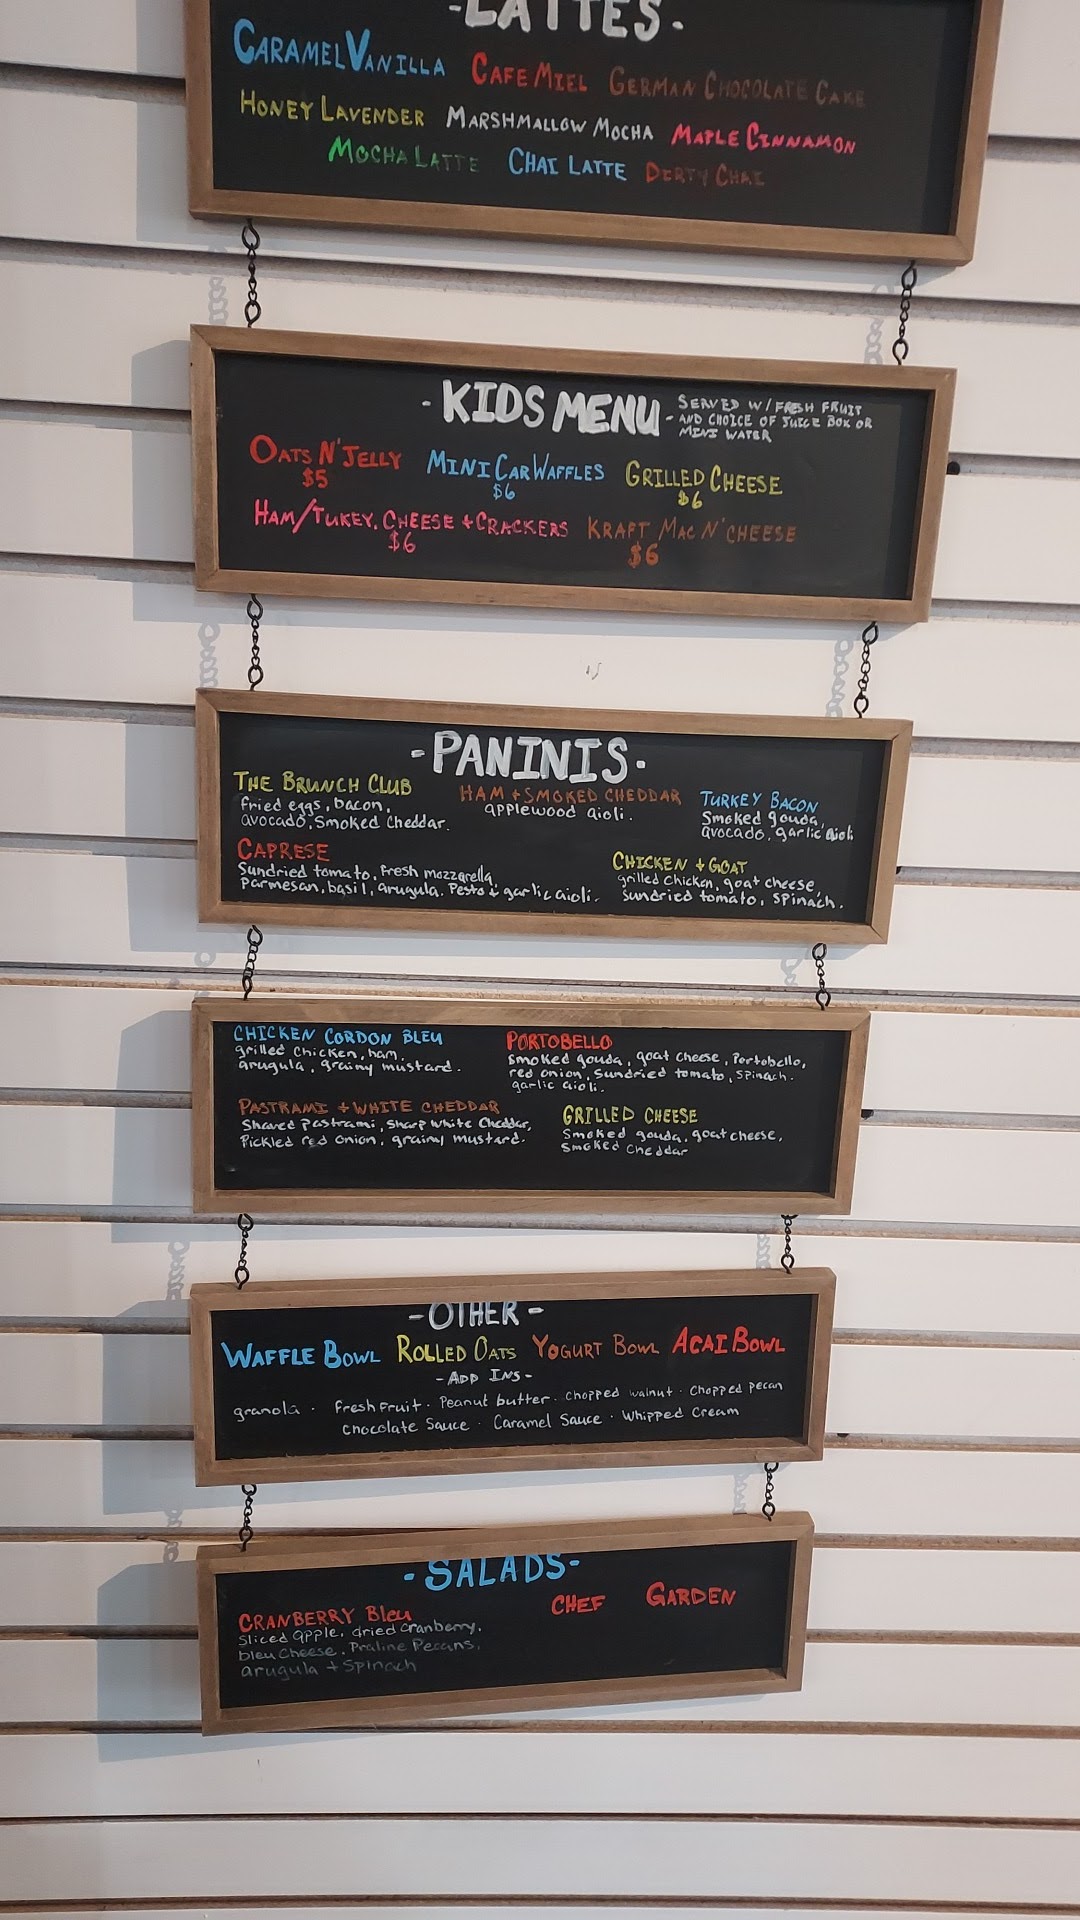 -LATTES-
CARAMEL VANILLA CAFE MIEL GERMAN CHOCOLATE CAKE
HONEY LAVENDER MARSHMALLOW MOCHA MAPLE CINNAMON
MOCHA LATTE CHAI LATTE DIRTY CHAI
-KIDS MENU-
SERVED W/FRESH FRUIT
AND CHOICE OF JUICE BOX OR
MINI WATER
OATS N'JELLY MINI CAR WAFFLES GRILLED CHEESE
$5 $6 $6
HAM/TUKEY, CHEESE + CRACKERS KRAFT MAC N'CHEESE
$6 $6
-PANINIS-
THE BRUNCH CLUB
Fried eggs, bacon,
avocado, smoked cheddar.
HAM + SMOKED CHEDDAR
applewood aioli.
TURKEY BACON
Smoked gouda,
avocado, garlic aioli
CAPRESE
Sundried tomato, fresh mozzarella
Parmesan, basil, arugula. Pesto & garlic aioli.
CHICKEN + GOAT
grilled chicken, goat cheese,
Sundried tomato, spinach.
CHICKEN CORDON BLEU
grilled chicken, ham,
arugula, grainy mustard.
PORTOBELLO
Smoked gouda, goat cheese, Portobello,
red onion, sundried tomato, spinach.
garlic aioli.
PASTRAMI + WHITE CHEDDAR
Shaved Pastrami, sharp white cheddar,
Pickled red onion, grainy mustard.
GRILLED CHEESE
Smoked gouda, goat cheese,
Smoked cheddar
-OTHER-
WAFFLE BOWL ROLLED OATS YOGURT BOWL ACAI BOWL
-ADD INS-
granola · Fresh Fruit · Peanut butter · chopped walnut · Chopped pecan
Chocolate Sauce · Caramel Sauce · Whipped Cream
-SALADS-
CRANBERRY Bleu
Sliced apple, dried cranberry,
bleu cheese, Praline Pecans,
arugula + Spinach
CHEF GARDEN